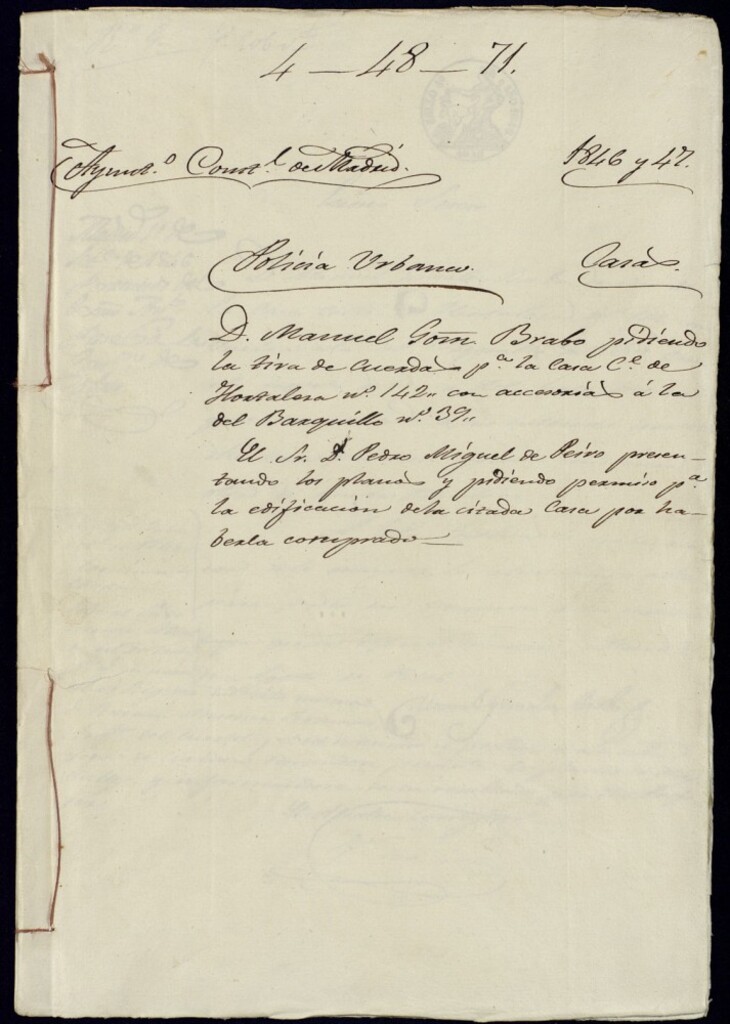 4 — 48 — 71.
Ayunt.º Const.l de Madrid. 1846 y 47.
Policía Urbana. Casas.
D. Manuel Gom Brabo pidiendo
la tira de cuerdas p.a la Casa C.e de
Hortaleza n.º 142,, con accesorias á la
del Barquillo n.º 39,,
El Sr. D. Pedro Miguel de Peiro presen-
tando los planos y pidiendo permiso p.a
la edificacion dela citada Casa por ha-
berla comprado—